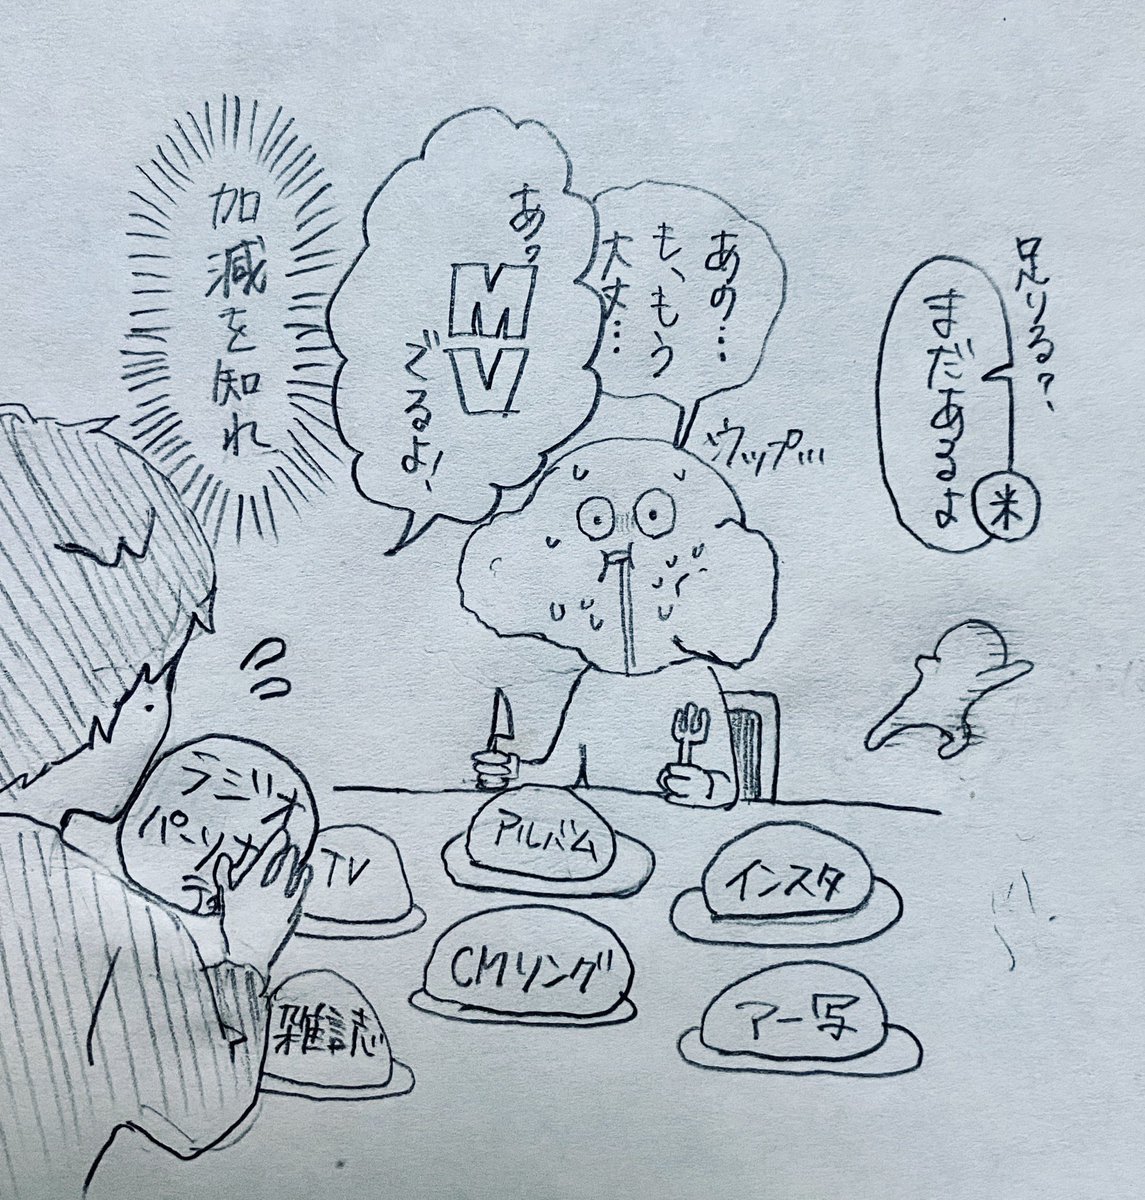 足りる?
まだあるよ
米
あの…
も、もう
大丈…
ウップ…
あっ
MV
でるよ!
加減を知れ
フジオ
パーソナ
TV
アルバム
インスタ
CMソング
アー写
雑誌